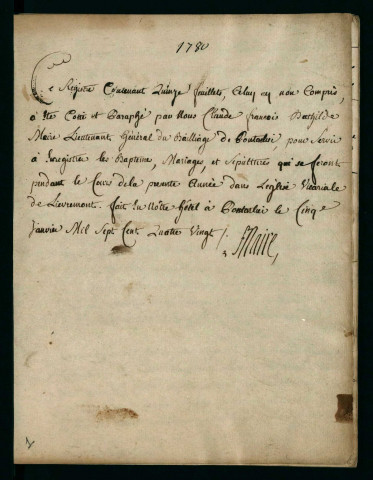 1780
Ce Registre Contenant Quinze feuillets, Celuy cy non Compris,
a Eté Cotté et Paraphé par Nous Claude françois Bathilde
Maire Lieutenant Général du Bailliage de Pontarlier, pour Servir
à Enregistrer les Baptemes, Mariages, et Sépultures qui se feront
pendant le Cours de la présente Année dans l'eglise Vicariale
de Lievremont. fait En Nôtre hôtel à Pontarlier le Cinq
Janvier Mil Sept Cent Quatre Vingt /.
Maire,